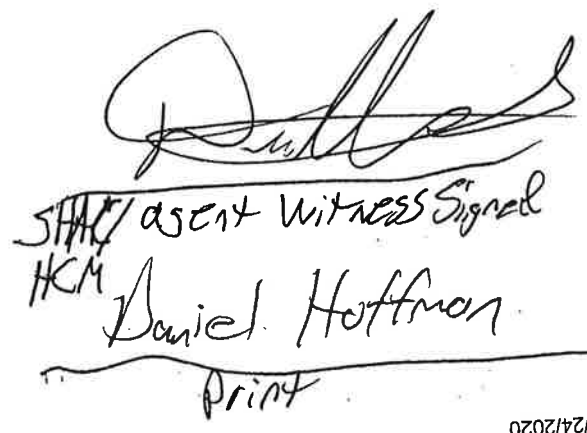 SHAC/ agent Witness Signed
HCM
Daniel Hoffman
Print
/24/2020